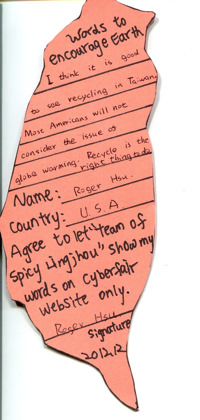 Words to
encourage Earth
I think it is good
to see recycling in Taiwan.
Most Americans will not
consider the issue of
globe warming. Recycle is the
right thing to do
Name: Roger Hsu.
Country: U.S.A
Agree to let "team of
spicy Lingjhou" show my
words on Cyberfair
website only.
Roger Hsu
signature
2012.12